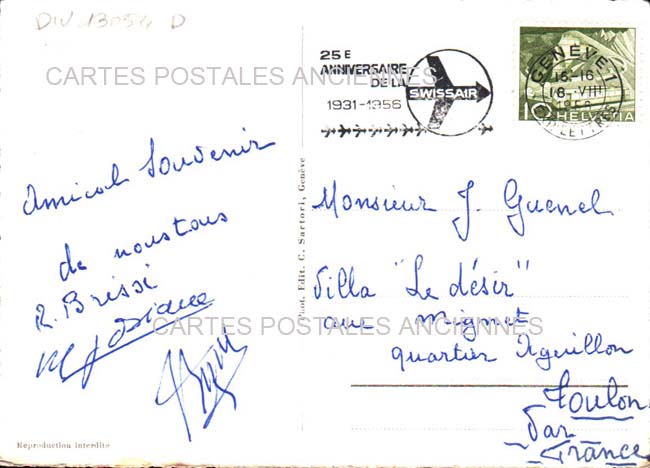 DIV 13054 D
25E
ANNIVERSAIRE
DE LA
1931-1956
SWISSAIR
GENÈVE 1
16-16
18.VIII
1956
LETTRES
10 HELVETIA
CARTES POSTALES ANCIENNES
Amical Souvenir
de nous tous
R. Brissi
Phot. Edit. C. Sartori, Genève
Monsieur J. Guenel
Villa "Le désir"
Mignet
quartier Aguillon
Toulon
Var
France
CARTES POSTALES ANCIENNES
Reproduction interdite